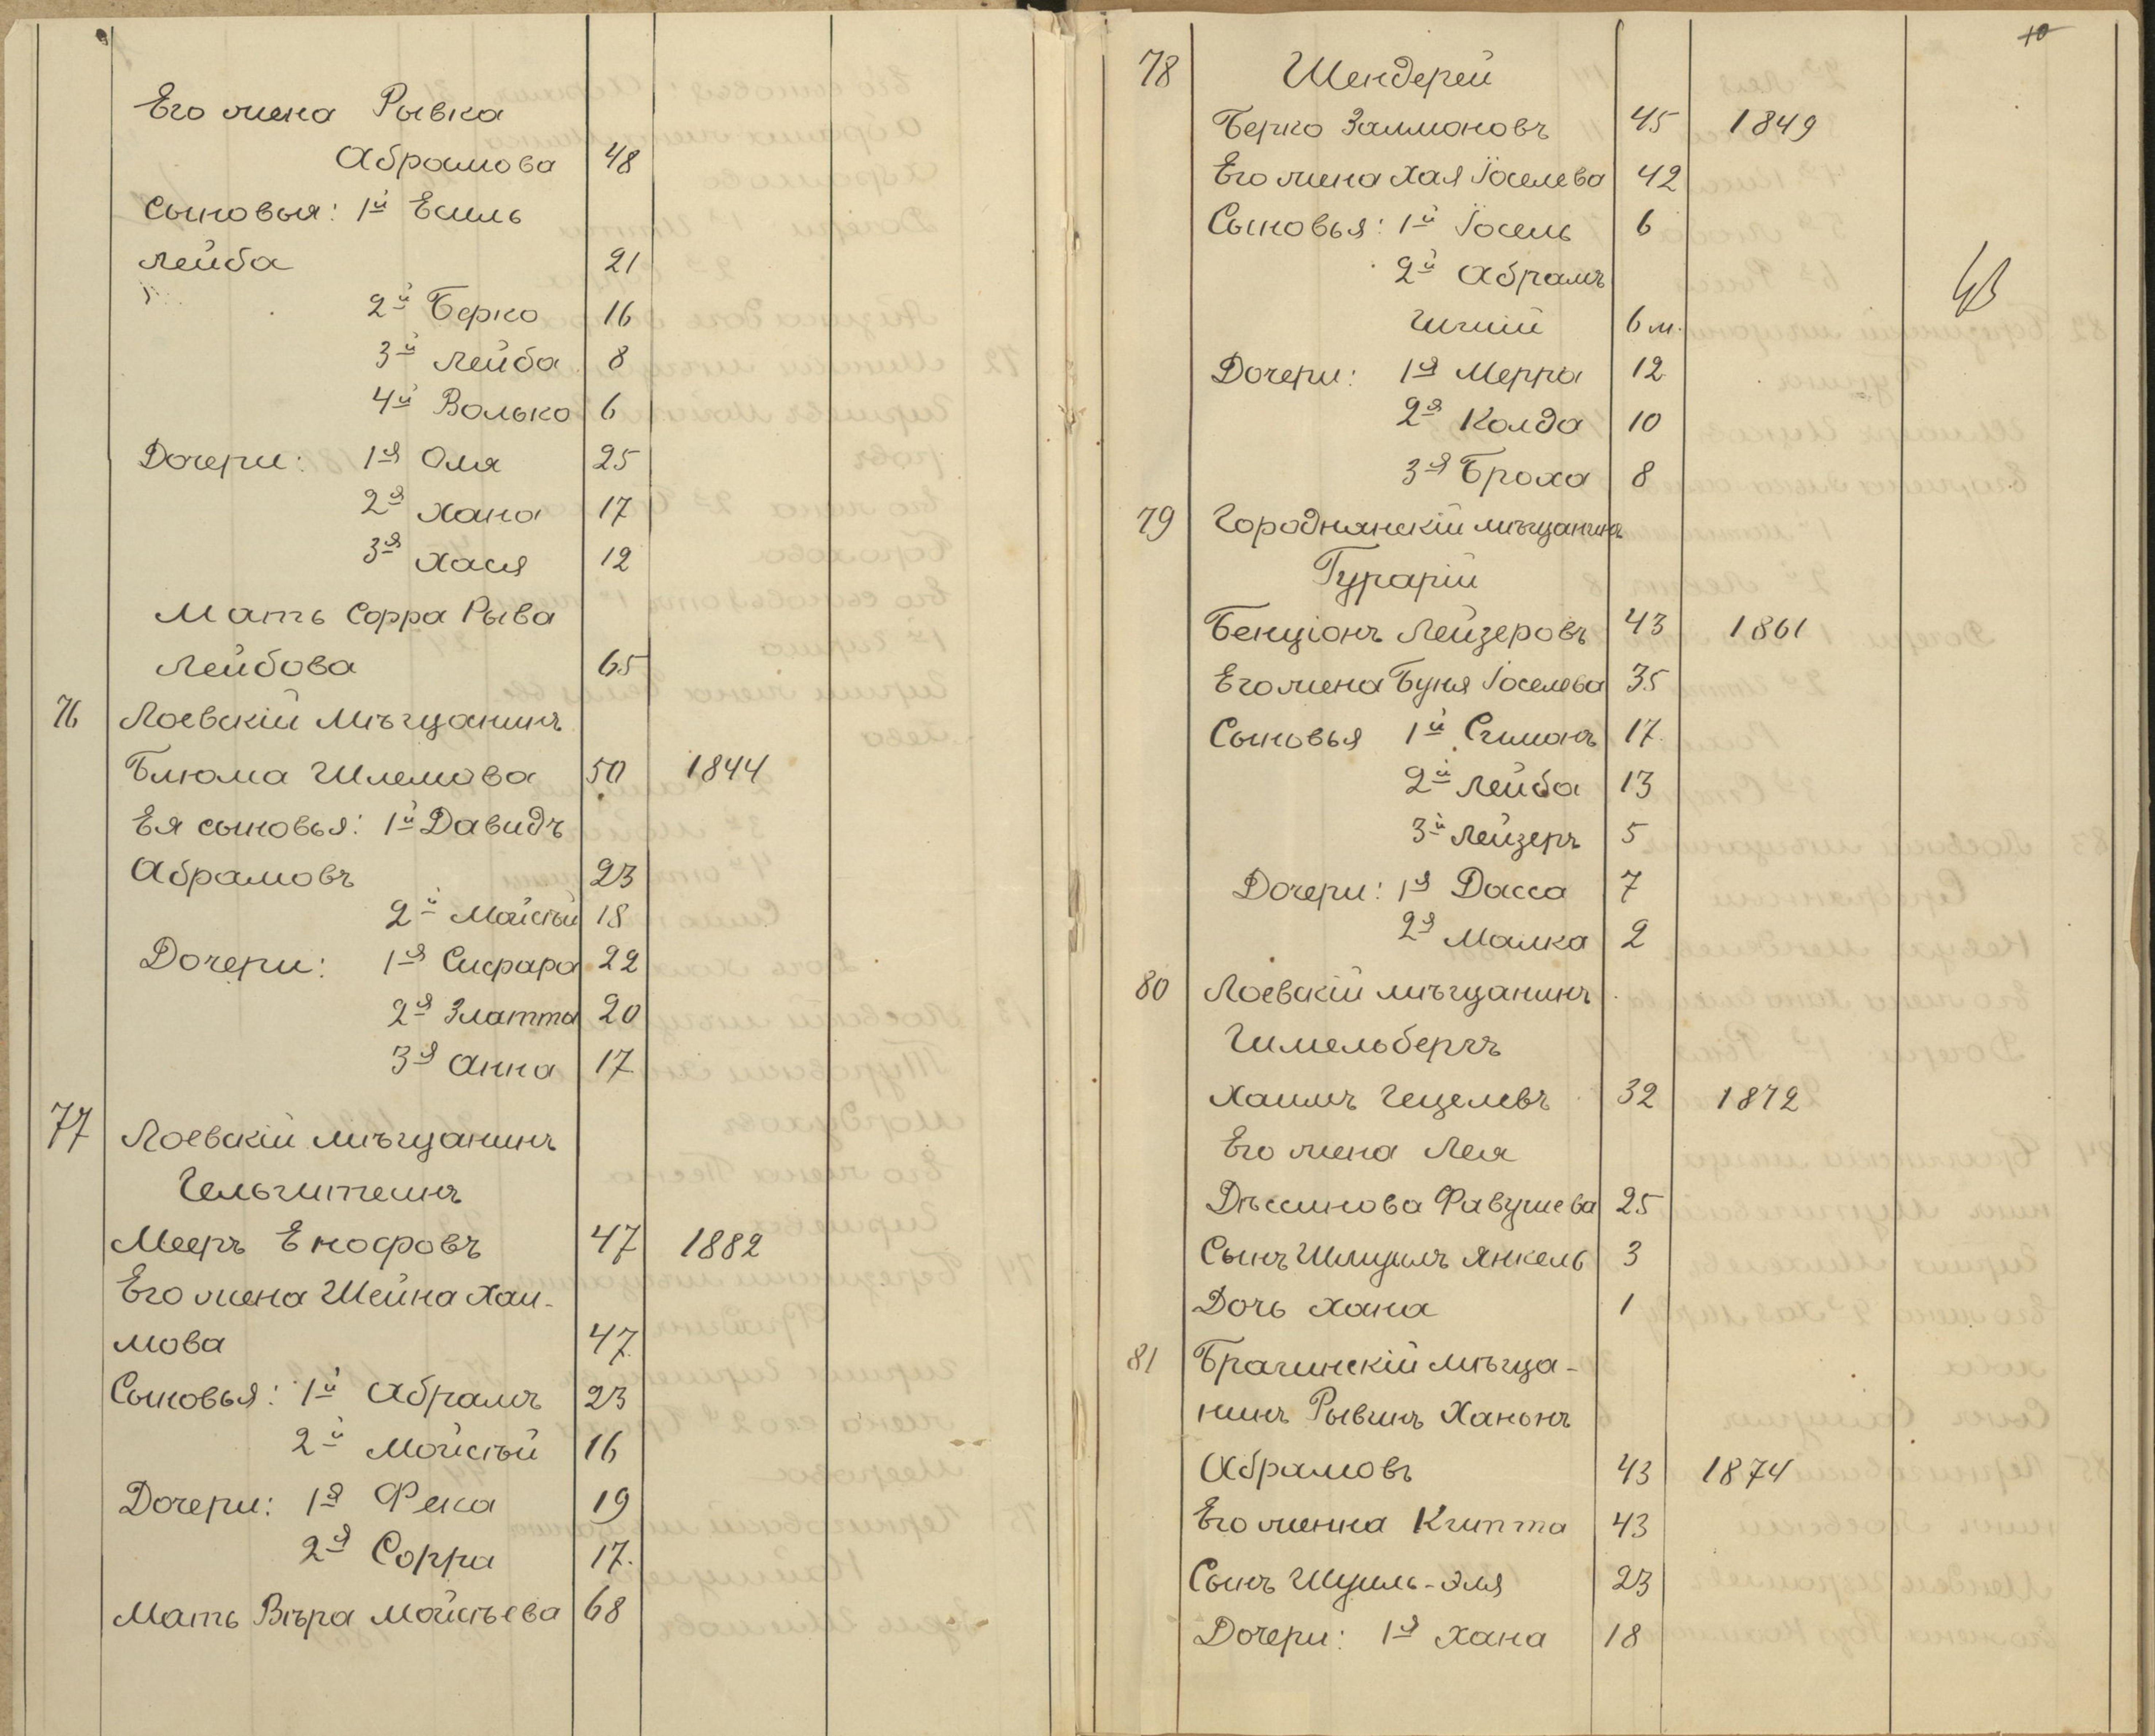 Его жена Рывка
Абрамова 48
Сыновья: 1й Есиль
Лейба 21
2й Берко 16
3й Лейба 8
4й Волько 6
Дочери: 1я Оля 25
2я Хана 17
3я Хася 12
Мать Сорра Рыва
Лейбова 65
76 Лоевскій мѣщанинъ
Блюма Шлемова 50 1844
Ея сыновья: 1й Давидъ
Абрамовъ 23
2й Мойсѣй 18
Дочери: 1я Сифара 22
2я Златта 20
3я Анна 17
77 Лоевскій мѣщанинъ
Гельчитеинъ
Мееръ Еносровъ 47 1882
Его жена Шейна Хаи-
мова 47
Сыновья: 1й Абрамъ 23
2й Мойсѣй 16
Дочери: 1я Река 19
2я Сорра 17.
Мать Вѣра Мойсѣева 68
10
78 Шендерей
Берко Залмановъ 45 1849
Его жена Хая Іоселева 42
Сыновья: 1й Іосель 6
2й Абрамъ
6 м.
Дочери: 1я Мерра 12
2я Колда 10
3я Броха 8
79 Городнянскій мѣщанинъ
Гурарій
Бенціонъ Лейзеровъ 43 1861
Его жена Буня Іоселева 35
Сыновья 1й Симонъ 17
2й Лейба 13
3й Лейзеръ 5
Дочери: 1я Дасса 7
2я Малка 2
80 Лоевскій мѣщанинъ
Гимельбергъ
Хаимъ Гецелевъ 32 1872
Его жена Лея
Дѣсинова Фавушева 25
Сынъ Шмуилъ Янкель 3
Дочь Хана 1
81 Брагинскій мѣща-
нинъ Рывинъ Ханонъ
Абрамовъ 43 1874
Его женна Гитта 43
Сынъ Шуиль-Эля 23
Дочери: 1я Хана 18